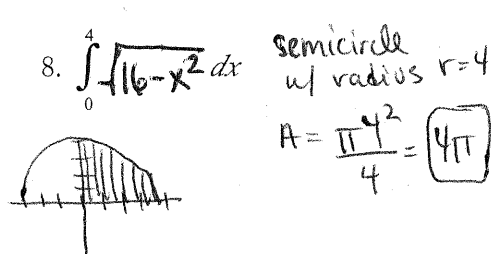 8. ∫₀⁴ √(16-x²) dx
semicircle
w/ radius r=4
A = π4²/4 = 4π